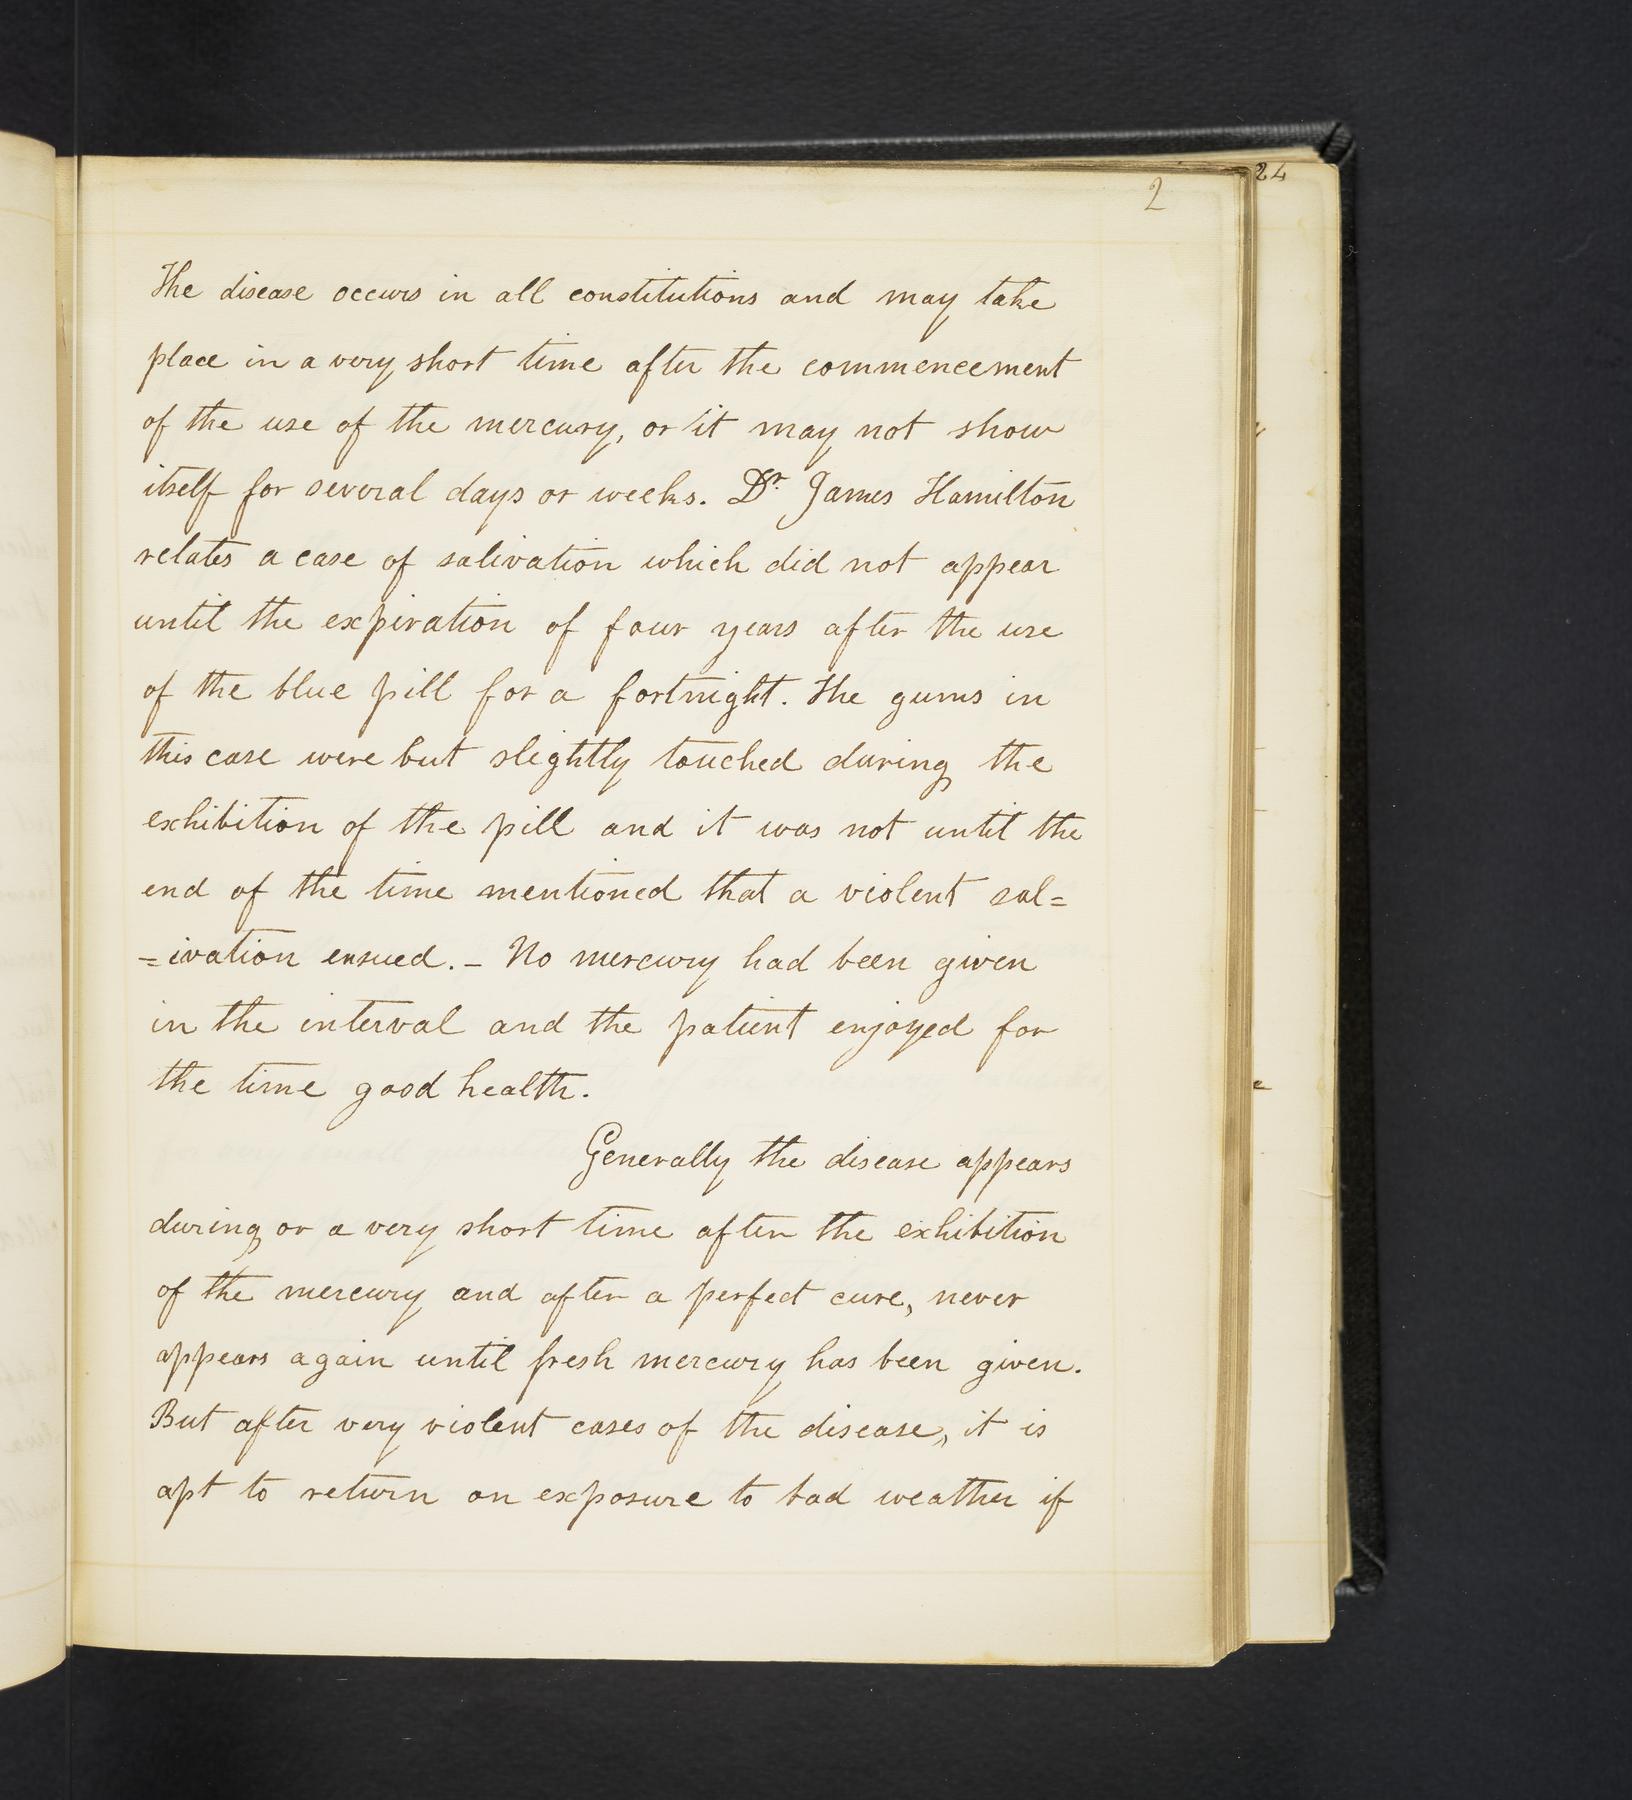 2
24
The disease occurs in all constitutions and may take
place in a very short time after the commencement
of the use of the mercury, or it may not show
itself for several days or weeks. Dr. James Hamilton
relates a case of salivation which did not appear
until the expiration of four years after the use
of the blue pill for a fortnight. The gums in
this case were but slightly touched during the
exhibition of the pill and it was not until the
end of the time mentioned that a violent sal=
=ivation ensued. – No mercury had been given
in the interval and the patient enjoyed for
the time good health.
Generally the disease appears
during or a very short time after the exhibition
of the mercury and after a perfect cure, never
appears again until fresh mercury has been given.
But after very violent cases of the disease, it is
apt to return on exposure to bad weather if